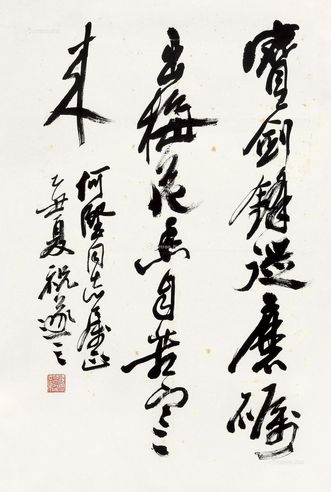 寶劍鋒從磨礪
出梅花香自苦寒
来
何堅同志屬正
乙丑夏祝遂之